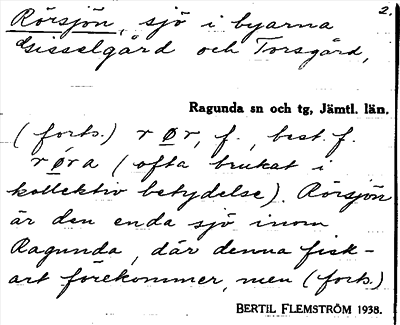 2.
Rörsjön, sjö i byarna
Gisselgård och Torsgård,
Ragunda sn och tg, Jämtl. län.
(forts.) r ø r, f., best. f.
r ø r a (ofta brukat i
kollektiv betydelse). Rörsjön
är den enda sjö inom
Ragunda, där denna fisk-
art förekommer, men (forts.)
BERTIL FLEMSTRÖM 1938.